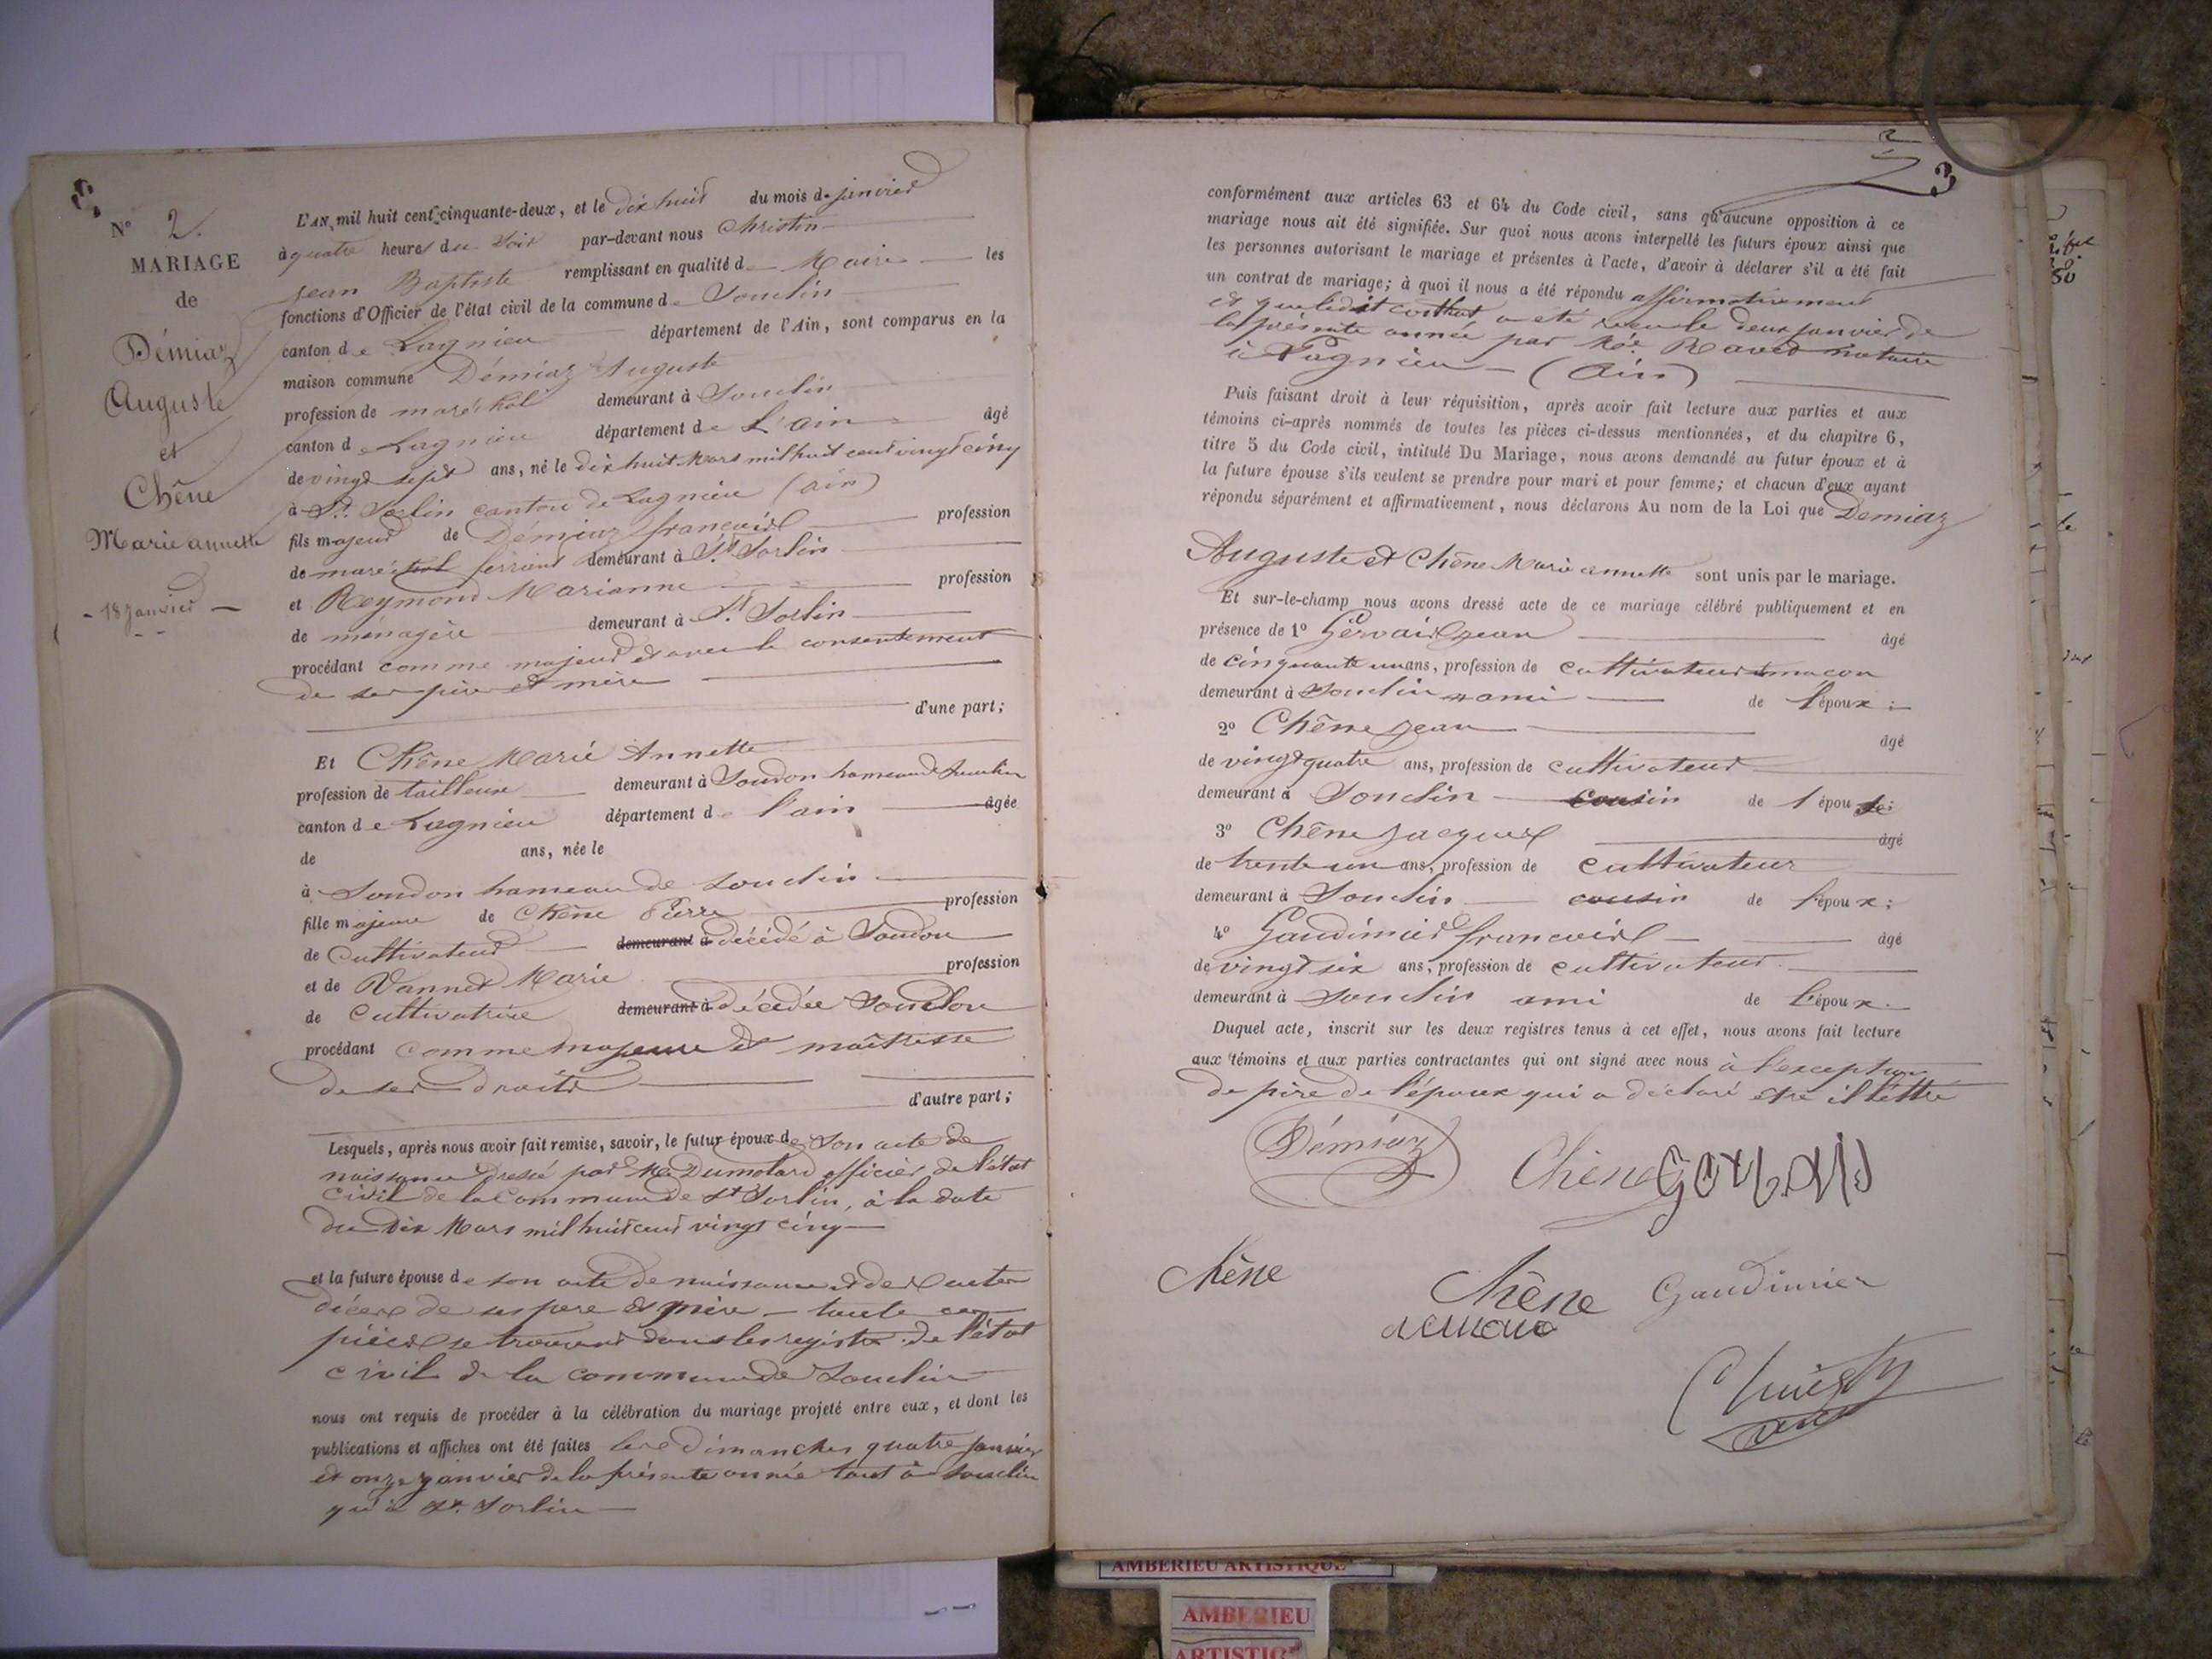 N° 2.
MARIAGE
de
Démiaz
Auguste
et
Chêne
Marie annette
- 18 janvier -
L'AN mil huit cent cinquante-deux, et le dix huit du mois de janvier
à quatre heures du soir par-devant nous Christin
jean Baptiste remplissant en qualité de Maire les
fonctions d'Officier de l'état civil de la commune de Souclin
canton de Lagnieu département de l'Ain, sont comparus en la
maison commune Démiaz Auguste
profession de maréchal demeurant à Souclin
canton de Lagnieu département de L'ain âgé
de vingt sept ans, né le dix huit Mars mil huit cent vingt cinq
à St. Sorlin canton de Lagnieu (ain)
fils majeur de Démiaz françois profession
de maréchal ferrant demeurant à St Sorlin
et Reymond Marianne profession
de ménagère demeurant à St. Sorlin
procédant comme majeur et avec le consentement
de ses père et mère
d'une part;
Et Chêne Marie Annette
profession de tailleuse demeurant à Soudon hameau de Souclin
canton de Lagnieu département de l'ain âgée
de ans, née le
à Soudon hameau de Souclin
fille majeure de Chêne Pierre profession
de Cultivateur demeurant à décédé à Soudon
et de Vannet Marie profession
de Cultivatrice demeurant à décédée Soudon
procédant comme majeure et maîtresse
de ses droits
d'autre part;
Lesquels, après nous avoir fait remise, savoir, le futur époux de Son acte de
naissance dressé par Mr Dumolard officier de l'état
civil de la Commune de St Sorlin, à la date
du Dix Mars mil huit cent vingt cinq
et la future épouse de son acte de naissance et des actes
décès de ses père et mère - toute ces
pièces se trouvent dans les registre de l'état
civil de la commune de Souclin
nous ont requis de procéder à la célébration du mariage projeté entre eux, et dont les
publications et affiches ont été faites les Dimanches quatre janvier
et onze janvier de la présente année tant à Souclin
qu'à St. Sorlin
3
conformément aux articles 63 et 64 du Code civil, sans qu'aucune opposition à ce
mariage nous ait été signifiée. Sur quoi nous avons interpellé les futurs époux ainsi que
les personnes autorisant le mariage et présentes à l'acte, d'avoir à déclarer s'il a été fait
un contrat de mariage; à quoi il nous a été répondu affirmativement
et que ledit contrat a été reçu le deux janvier de
la présente année par Me. Ravet notaire
à Lagnieu - (Ain)
Puis faisant droit à leur réquisition, après avoir fait lecture aux parties et aux
témoins ci-après nommés de toutes les pièces ci-dessus mentionnées, et du chapitre 6,
titre 5 du Code civil, intitulé Du Mariage, nous avons demandé au futur époux et à
la future épouse s'ils veulent se prendre pour mari et pour femme; et chacun d'eux ayant
répondu séparément et affirmativement, nous déclarons Au nom de la Loi que Demiaz
Auguste et Chêne Marie annette sont unis par le mariage.
Et sur-le-champ nous avons dressé acte de ce mariage célébré publiquement et en
présence de 1° Gervais jean âgé
de cinquante un ans, profession de cultivateur maçon
demeurant à Souclin ami de l'époux;
2° Chêne jean âgé
de vingt quatre ans, profession de cultivateur
demeurant à Souclin cousin de l'épouse;
3° Chêne jacques âgé
de trente un ans, profession de cultivateur
demeurant à Souclin cousin de l'époux;
4° Gaudinier françois âgé
de vingt six ans, profession de cultivateur
demeurant à Souclin ami de l'époux.
Duquel acte, inscrit sur les deux registres tenus à cet effet, nous avons fait lecture
aux témoins et aux parties contractantes qui ont signé avec nous à l'exception
de père de l'époux qui a déclaré etre illéttré
Démiaz
Chêne Gervais
Chêne
Chêne Gaudinier
Christin
AMBERIEU ARTISTIQUE
AMBERIEU
ARTISTIQ